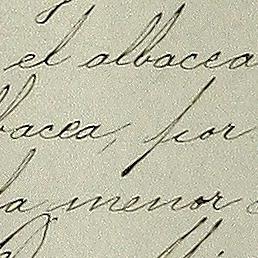 el albacea
bacea, por
la menor